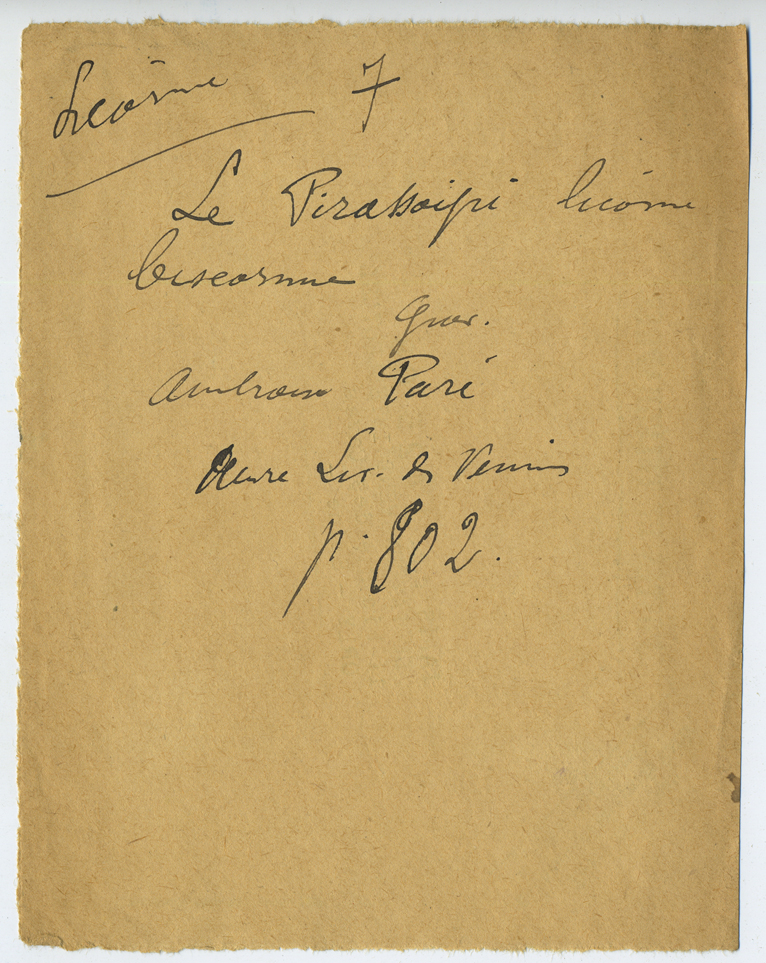 Licorne 7
Le Pirassoipi licorne
biscornue
Grav.
Ambroise Paré
Livre des Venins
p. 802.